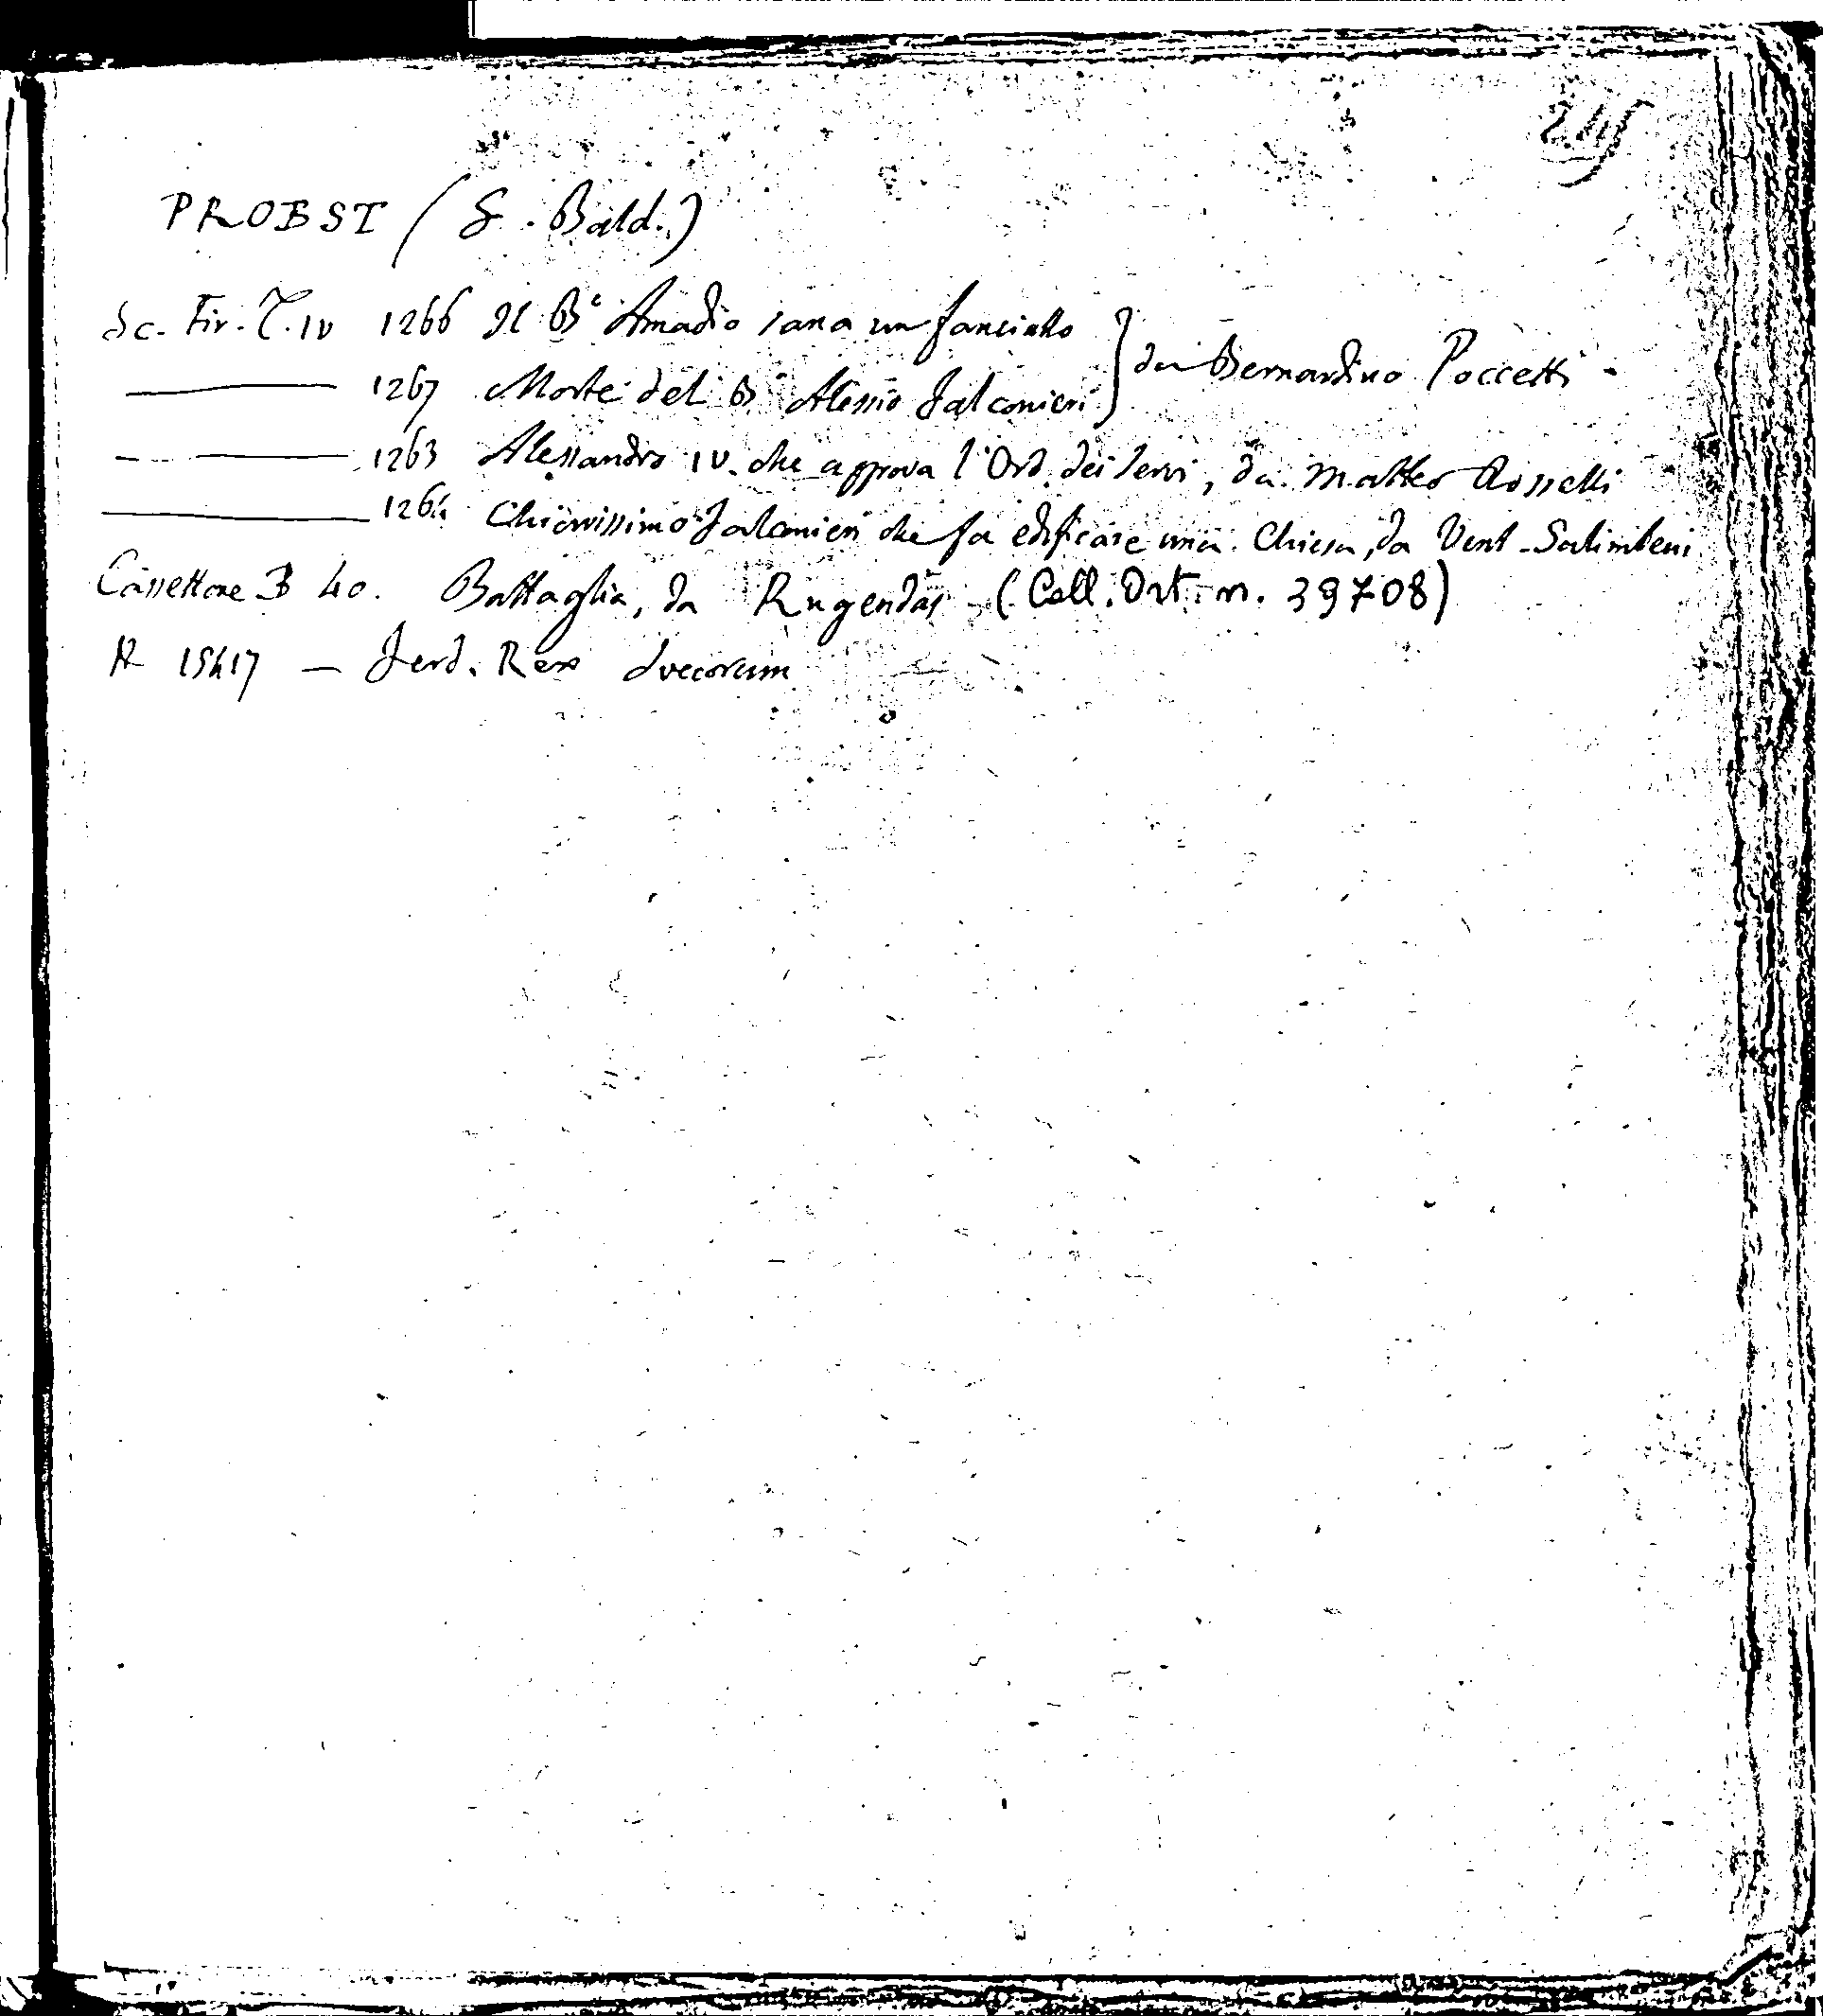 245
PROBST (G. Bald.)
Sc. Fir. T. IV 1266 Il B° Amadio sana un fanciullo
1267 Morte del B° Alessio Falconieri } da Bernardino Poccetti -
1263 Alessandro IV. che approva l'Ord. dei Servi, da Matteo Rosselli
1264 Chiarissimo Falconieri che fa edificare una Chiesa, da Vent. Salimbeni
Cassettone B 40. Battaglia, da Rugendas (Coll. Ort. n. 39708)
A 15417 — Ferd. Rex Svecorum